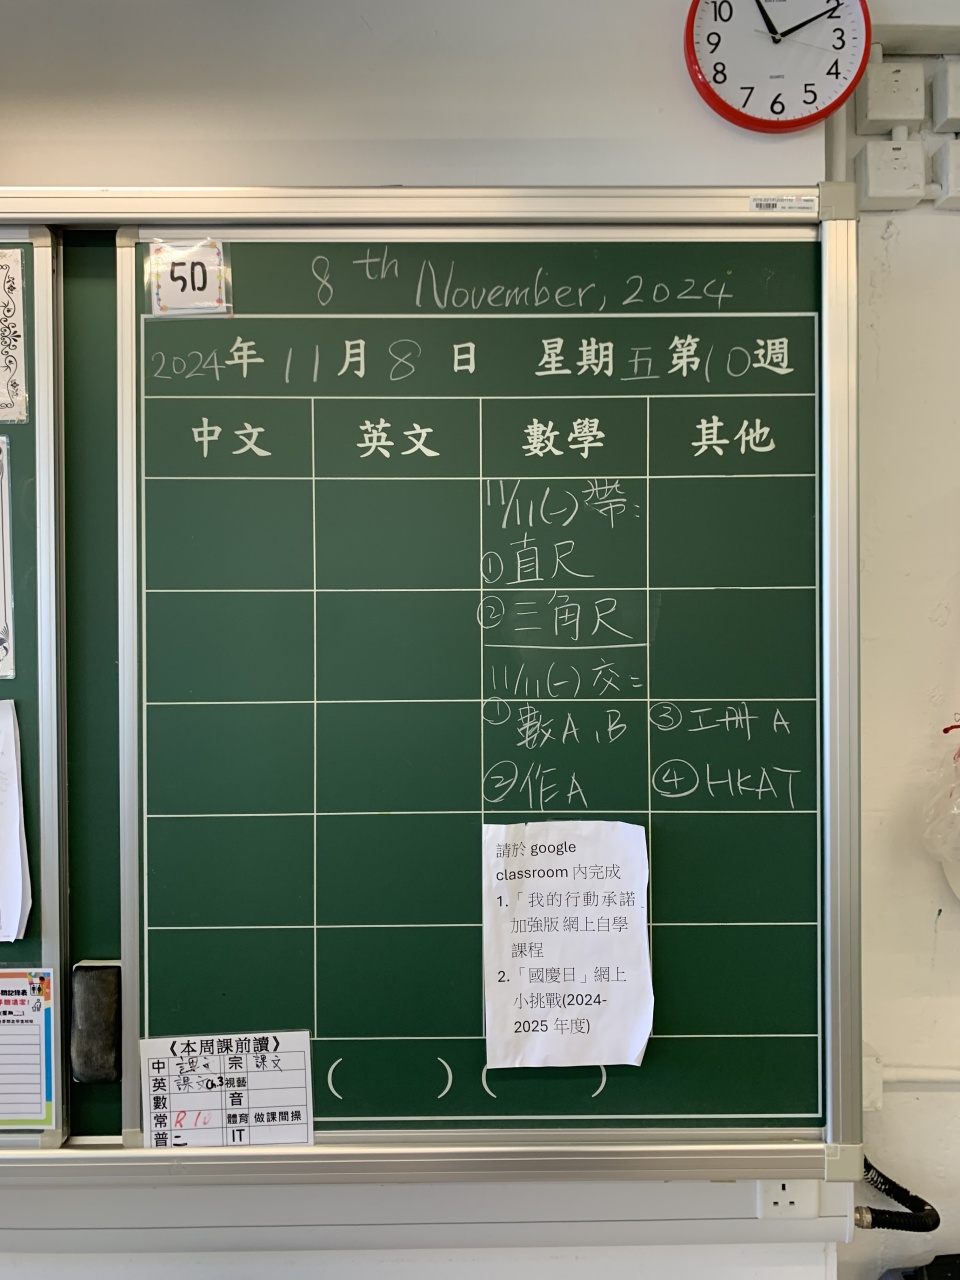 10
2
9
3
8
4
7
6
5
QUARTZ
5D
8th November, 2024
2024年11月8日 星期五第10週
中文 英文 數學 其他
11/11(一)帶:
①直尺
②三角尺
11/11(一)交:
①數A、B
③工冊A
②作A
④HKAT
請於 google
classroom 內完成
1.「我的行動承諾
加強版 網上自學
課程
2.「國慶日」網上
小挑戰(2024-
2025 年度)
( ) ( )
《本周課前讀》
中 課文 宗 課文
英 課文Ch.3 視藝
數 音
常 R10 體育 做課間操
普 二 IT